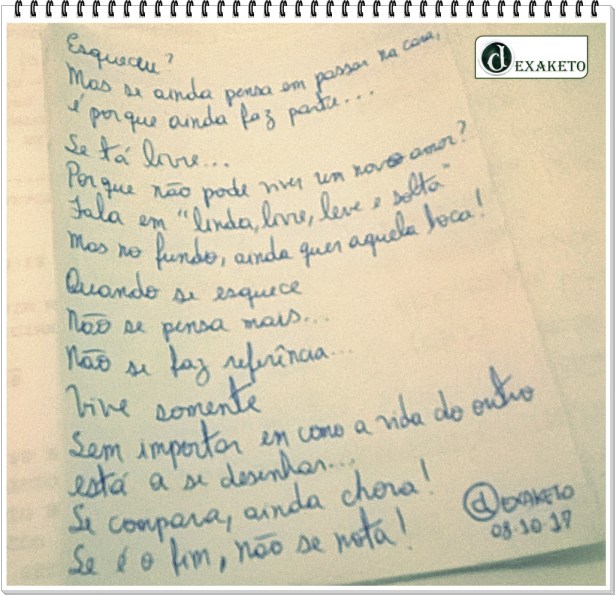 dEXAKETO
Esqueceu?
Mas se ainda pensa em passar na cara,
é porque ainda faz parte...
Se tá livre...
Porque não pode viver um novo amor?
Fala em "linda, livre, leve e solta"
Mas no fundo, ainda quer aquela boca!
Quando se esquece
Não se pensa mais...
Não se faz referência...
Vive somente
Sem importar em como a vida do outro
está a se desenhar...
Se compara, ainda chora!
Se é o fim, não se nota!
dEXAKETO
08.10.17